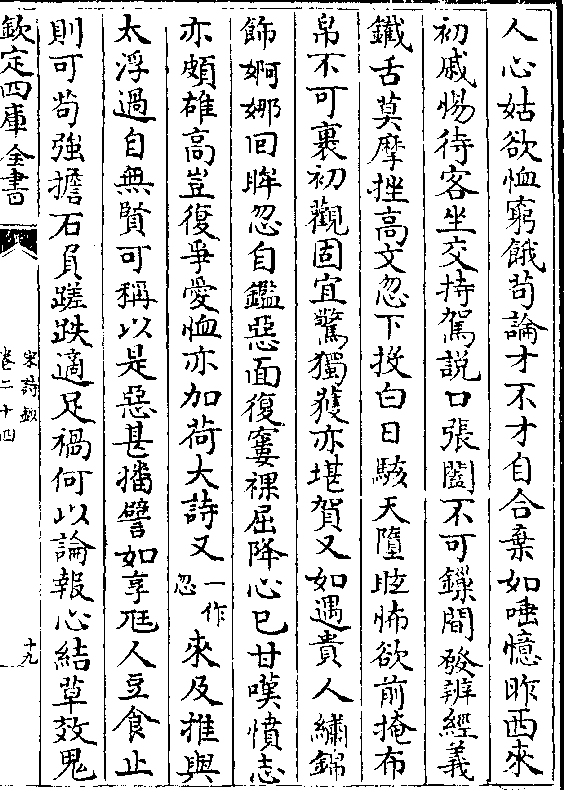 人心姑欲恤窮餓苟論才不才自合棄如唾憶昨西來
初戚惕待客坐交持駕說口張闔不可鏁間發辨經義
鐵舌莫摩挫高文忽下投白日駭天墮眩怖欲前掩布
帛不可裹初觀固宜驚獨獲亦堪賀又如遇貴人繡錦
飾婀娜回眸忽自鑑惡面復寠裸屈降心已甘嘆憤志
亦頗雄高豈復爭愛恤亦加荷大詩又一作忽來及推與
太浮過自無賢可稱以是惡甚播譬如享尫人豆食止
則可茍強擔石負蹉跌適足禍何以論報心結草效鬼
欽定四庫全書
宋詩鈔
卷二十四
十九